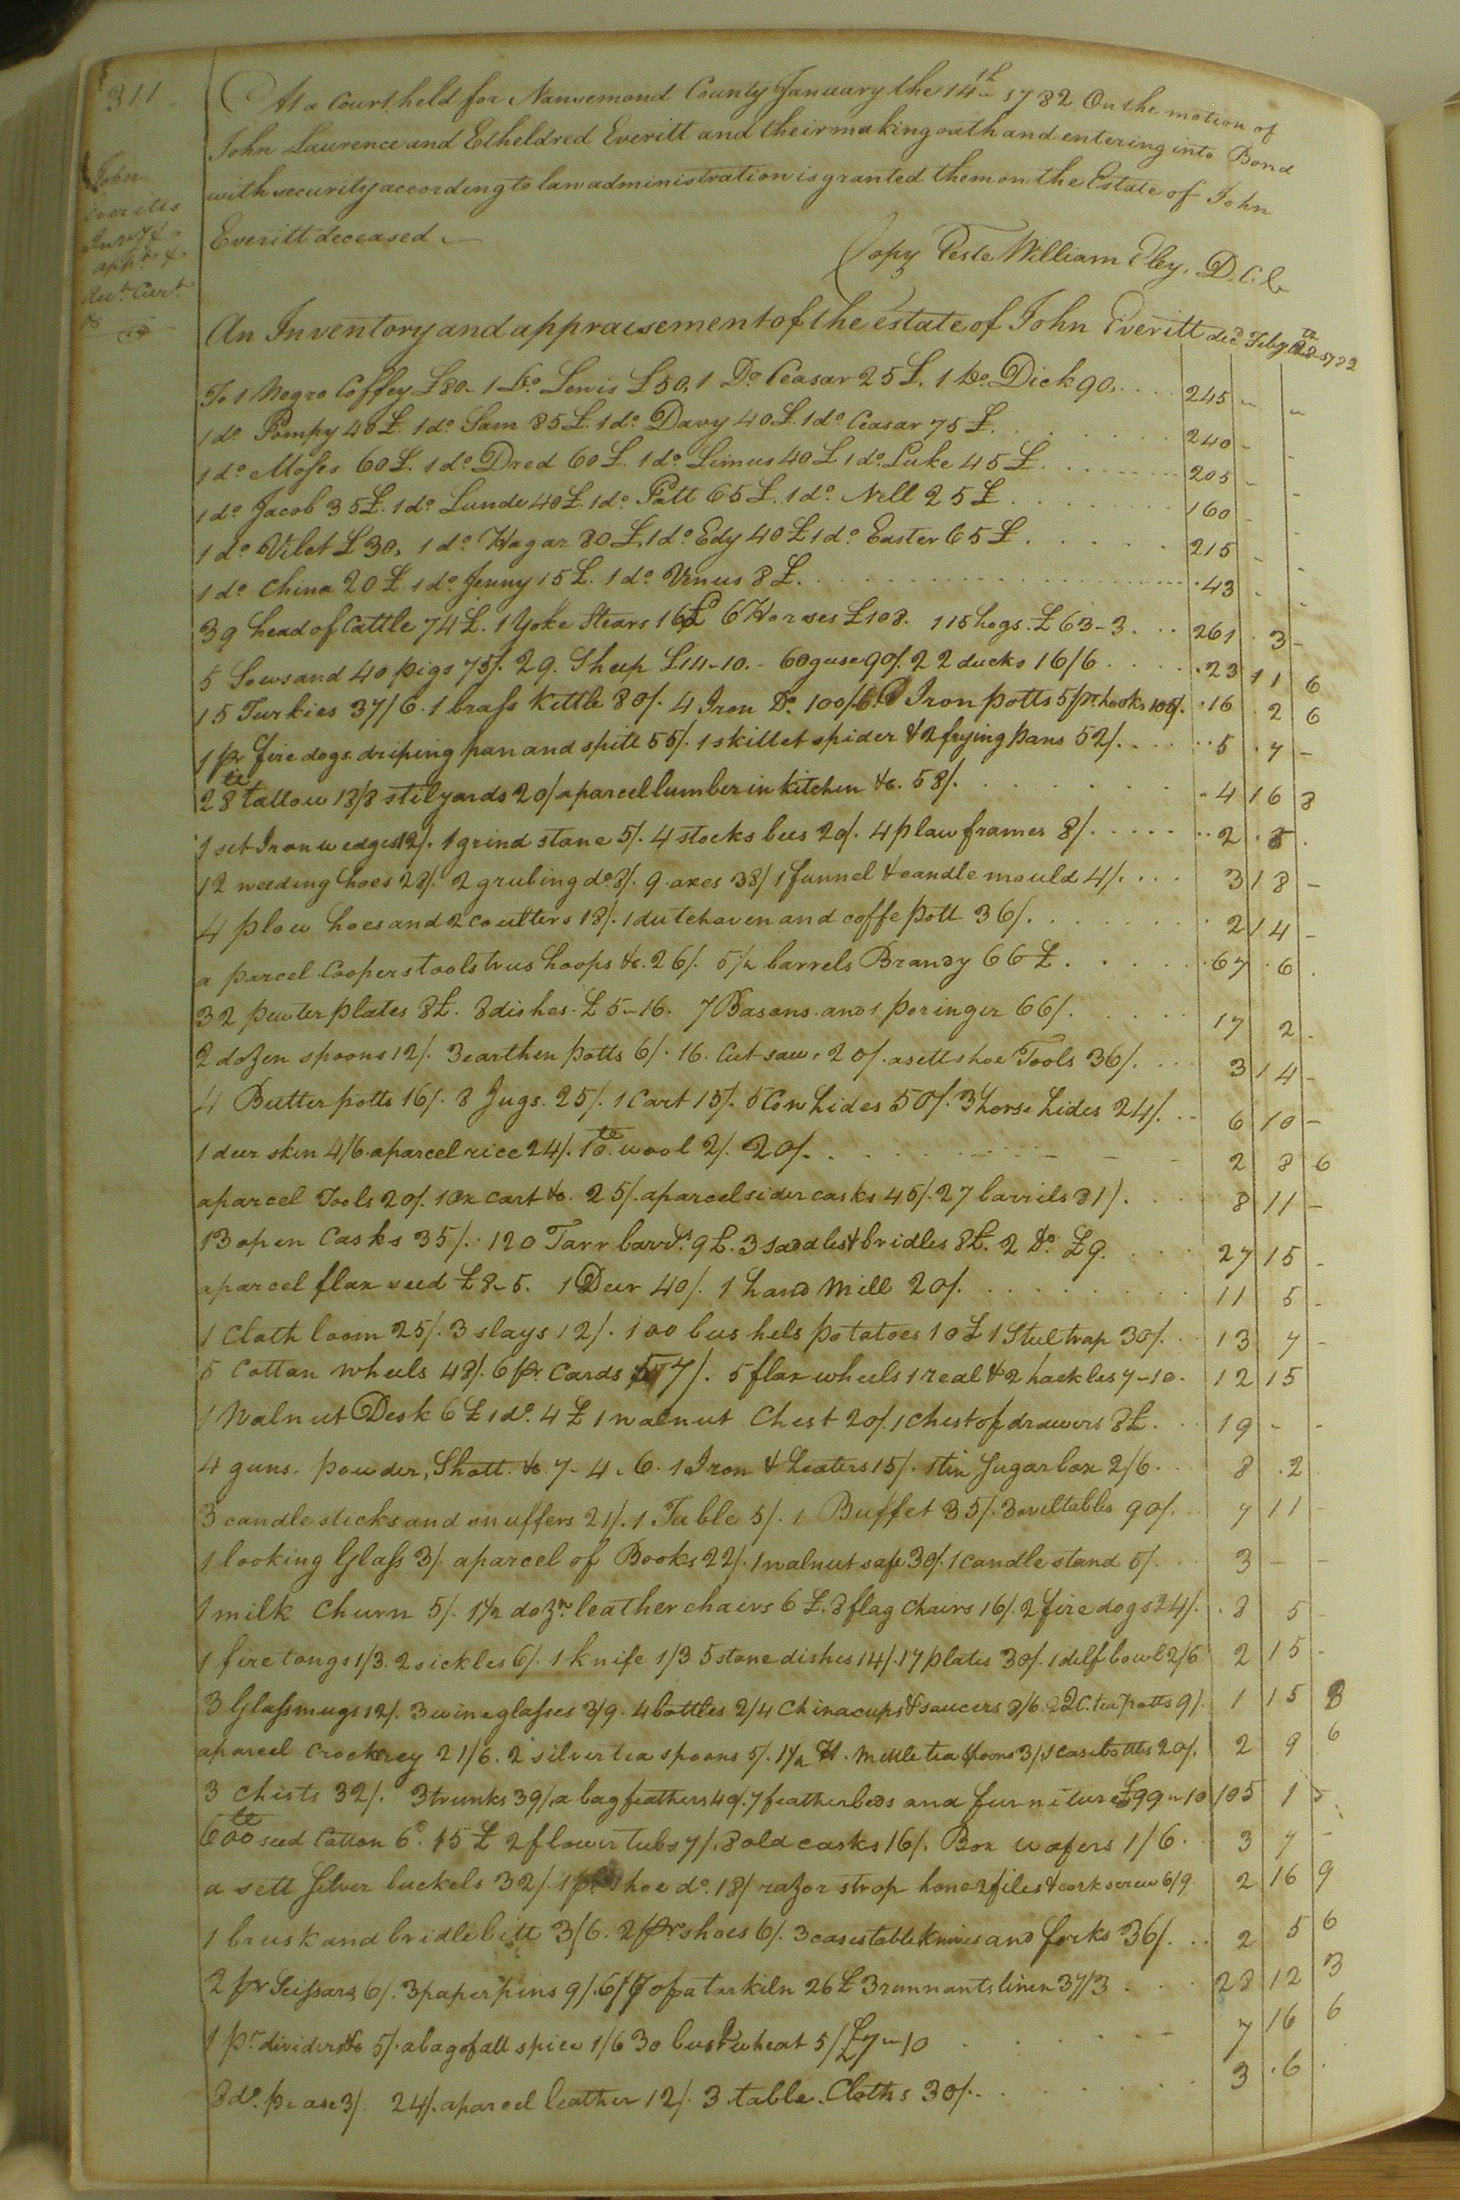 311
John
Everitts
Invy &
appt &
Acct Curt
&c
At a Court held for Nansemond County January the 14th 1782 On the motion of
John Laurence and Etheldred Everitt and their making oath and entering into Bond
with security according to law administration is granted them on the Estate of John
Everitt deceased
Copy Teste William Eley, D. C. C
An Inventory and appraisement of the estate of John Everitt decd Feby 1782
To 1 Negro Coffey £80. 1 Do. Lewis £50, 1 Do Ceasar 25£. 1 Do. Dick 90. 245
1 do Pompy 40£. 1 do. Sam 85£. 1 do. Davy 40£. 1 do Ceasar 75£. 240 -
1 do Moses 60£. 1 do. Dred 60£. 1 do. Limus 40£ 1 do. Luke 45£. 205 -
1 do. Jacob 35£. 1 do. Lunde 40£. 1 do. Patt 65£. 1 do. Nell 25£ 160 -
1 do. Vilet £30, 1 do. Hagar 80£, 1 do. Edy 40£ 1 do. Easter 65£. 215 - -
1 do. China 20£. 1 do. Jenny 15£. 1 do. Venus 8£. 43 - -
39 head of Cattle 74£. 1 Yoke Stears 16£ 6 Horses £108. 115 hogs. £63-3. 261 3 -
5 Sows and 40 pigs 75/. 29. Sheep £14-10. - 60 guse 90/. 22 ducks 16/6 23 11 6
15 Turkies 37/6. 1 brass Kettle 80/. 4 Iron Do. 100/ Iron potts 5 pr. hooks 105/. 16 2 6
1 pr fire dogs driping pan and spitt 55/. 1 skillet spider & 2 frying pans 52/. 5 7 -
28 tt tallow 18/8 stilyards 20/ a parcel lumber in kitchen &c. 58/. 4 16 8
1 set Iron wedges 12/. 1 grind stone 5/. 4 stocks bees 20/. 4 plaw frames 8/. 2 5
12 weeding hoes 28/. 2 grubing do. 8/. 9 axes 38/ 1 funnel & candle mould 4/. 3 18 -
4 plow hoes and 2 coulters 18/. 1 dutch oven and coffe pott 36/. 2 14 -
a parcel Coopers tools trus hoops &c. 26/. 5 1/2 barrels Brandy 66£. 67 6
32 pewter plates 8£. 8 dishes. £5-16. 7 Basons and 1 poringer 66/. 17 2
2 dozen spoons 12/. 3 earthen potts 6/. 1 6. Cut saw. 20/. a sett shoe Tools 36/. 3 14 -
4 Butter potts 16/. 8 Jugs. 25/. 1 Cart 15/. 5 Cow hides 50/. 3 horse hides 24/. 6 10 -
1 deer skin 4/6. a parcel rice 24/. 10 tt. wool 2/. 20/. 2 8 6
a parcel Tools 20/. 1 ox cart &c. 25/. a parcel sider casks 45/. 27 barrils 81/. 8 11 -
13 open Casks 35/. 120 Tarr barrls. 9£. 3 saddles & bridles 8£. 2 do. £9. 27 15 -
a parcel flax seed £8-5. 1 Deer 40/. 1 hand mill 20/. 11 5 -
1 Cloth loom 25/. 3 slays 12/. 100 bushels potatoes 10£ 1 Steel trap 30/. 13 7 -
5 Cotton wheels 48/. 6 pr. Cards 57/. 5 flax wheels 1 real & 2 hackles 7-10. 12 15
1 Walnut Desk 6£ 1 do. 4£ 1 walnut Chest 20/. 1 chest of drawers 8£. 19 - -
4 guns. powder, Shott. &c. 7-4.6. 1 Iron & heaters 15/. 1 tin Sugar box 2/6. 8 2
3 candlesticks and snuffers 21/. 1 Table 5/. 1 Buffet 35/. 3 oveltables 90/. 7 11 -
1 looking Glass 3/. a parcel of Books 22/. 1 walnut safe 30/. 1 candle stand 5/. 3 - -
1 milk Churn 5/. 1 1/2 dozn. leather chairs 6£. 8 flag Chairs 16/. 2 fire dogs 24/. 8 5 -
1 fire tongs 1/3. 2 sickles 6/. 1 knife 1/3 5 stone dishes 14/. 17 plates 30/. 1 delf bowl 2/6 2 15 -
3 Glass mugs 12/. 3 wine glasses 3/9. 4 bottles 2/4 China cups & saucers 8/6. 2 2C. tea potts 9/. 1 15 8
a parcel Crockrey 21/6. 2 silver tea spoons 5/. 1 1/2 . mettle tea spoons 3/ 1 case bottles 20/. 2 9 6
3 Chists 32/. 3 trunks 39/. a bag feathers 40/. 7 feather beds and furniture £99-10 105 1
600 tt seed Cotton 6d. 15£ 2 flower tubs 7/. 8 old casks 16/. Box wafers 1/6. 3 7 -
a sett Silver buckels 32/. 1 pr shoe do. 18/ razor strop hone 2 files & cork screw 6/9. 2 16 9
1 brusk and bridle bitt 3/6. 2 pr. shoes 6/. 3 cases table knives and forks 36/. 2 5 6
2 pr Scissars 6/. 3 paper pins 9/. of a tar kiln 26£ 3 remnants linen 37/3 28 12 3
1 pr. dividers &c 5/. a bag of all spice 1/6 30 bushl wheat 5/ £7-10 7 16 6
8 do. pease 3/. 24/. a parcel leather 12/. 3 table Cloths 30/. 3 6